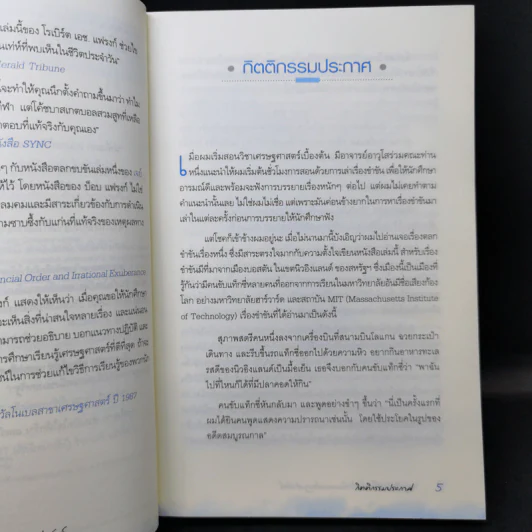 เล่มนี้ของ โรเบิร์ต เอช. แฟรงก์ ช่วยไข
น่ห์ที่พบเห็นในชีวิตประจำวัน"
erald Tribune
จะทำให้คุณนึกตั้งคำถามขึ้นมาว่า ทำไม
กีฬา แต่โค้ชบาสเกตบอลสวมสูทที่เหลือ
ตอบที่แท้จริงกับคุณเอง"
สือ SYNC
ๆ กับหนังสือตลกขบขันเล่มหนึ่งของ
ให้ไว้ โดยหนังสือของ บ๊อบ แฟรงก์ ไม่ใช่
ลมคมและมีสาระเกี่ยวข้องกับการดำเนิน
ามซาบซึ้งกับแก่นที่แท้จริงของเหตุผลทาง
ncial Order and Irrational Exuberance
งก์ แสดงให้เห็นว่า เมื่อคุณขอให้นักศึกษา
ะเห็นสิ่งที่น่าสนใจหลายเรื่อง และแน่นอน
ามารถช่วยอธิบาย บอกแนวทางปฏิบัติ และ
การศึกษาเรียนรู้เศรษฐศาสตร์ที่ดีที่สุด ถ้าจะ
น์ในการช่วยแก้ไขวิธีการเรียนรู้ของพวกนัก
วัลโนเบลสาขาเศรษฐศาสตร์ ปี 1987
กิตติกรรมประกาศ
เมื่อผมเริ่มสอนวิชาเศรษฐศาสตร์เบื้องต้น มีอาจารย์อาวุโสร่วมคณะท่าน
หนึ่งแนะนำให้ผมเริ่มต้นชั่วโมงการสอนด้วยการเล่าเรื่องขำขัน เพื่อให้นักศึกษา
อารมณ์ดีและพร้อมจะฟังการบรรยายเรื่องหนักๆ ต่อไป แต่ผมไม่เคยทำตาม
คำแนะนำนั้นเลย ไม่ใช่ผมไม่เชื่อ แต่เพราะมันค่อนข้างยากในการหาเรื่องขำขันมา
เล่าในแต่ละครั้งก่อนการบรรยายให้นักศึกษาฟัง
แต่โชคก็เข้าข้างผมอยู่นะ เมื่อไม่นานมานี้บังเอิญว่าผมไปอ่านเจอเรื่องตลก
ขำขันเรื่องหนึ่ง ซึ่งมีสาระตรงใจมากกับความตั้งใจเขียนหนังสือเล่มนี้ สำหรับเรื่อง
ขำขันนี้มีที่มาจากเมืองบอสตัน ในเขตนิวอิงแลนด์ ของสหรัฐฯ ซึ่งเมืองนี้เป็นเมืองที่
รู้กันว่ามีคนขับแท็กซี่หลายคนที่ออกจากการเรียนในมหาวิทยาลัยอันมีชื่อเสียงก้อง
โลก อย่างมหาวิทยาลัยฮาร์วาร์ด และสถาบัน MIT (Massachusetts Institute
of Technology) เรื่องขำขันที่ได้อ่านมาเป็นดังนี้
สุภาพสตรีคนหนึ่งลงจากเครื่องบินที่สนามบินโลแกน ฉวยกระเป๋า
เดินทาง และรีบขึ้นรถแท็กซี่ออกไปด้วยความหิว อยากกินอาหารทะเล
รสดีของนิวอิงแลนด์เป็นมื้อเย็น เธอจึงบอกกับคนขับแท็กซี่ว่า "พาฉัน
ไปที่ไหนก็ได้ที่มีปลาคอดให้กิน"
คนขับแท็กซี่หันกลับมา และพูดอย่างขำๆ ขึ้นว่า "นี่เป็นครั้งแรกที่
ผมได้ยินคนพูดแสดงความปรารถนาเช่นนั้น โดยใช้ประโยคในรูปของ
อดีตสมบูรณกาล"
กิตติกรรมประกาศ 5